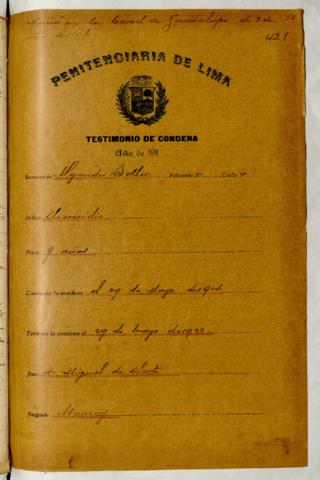 Murió en la Carcel de Guadalupe el 3 de
421
PENITENCIARIA DE LIMA
TESTIMONIO DE CONDENA
Año, de 191
Rematado Filiación N° Celda N°
Delito Homicidio
Pena 9 años
Comienza la condena el 29 de Mayo de 191
Termina la condena el 29 de Mayo de 192
Juez Dr. Miguel de la
Juzgado